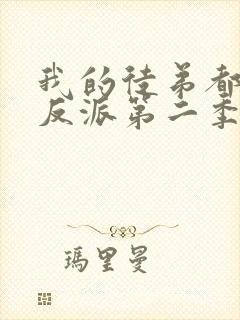 我的徒弟都
反派第二季
玛里曼